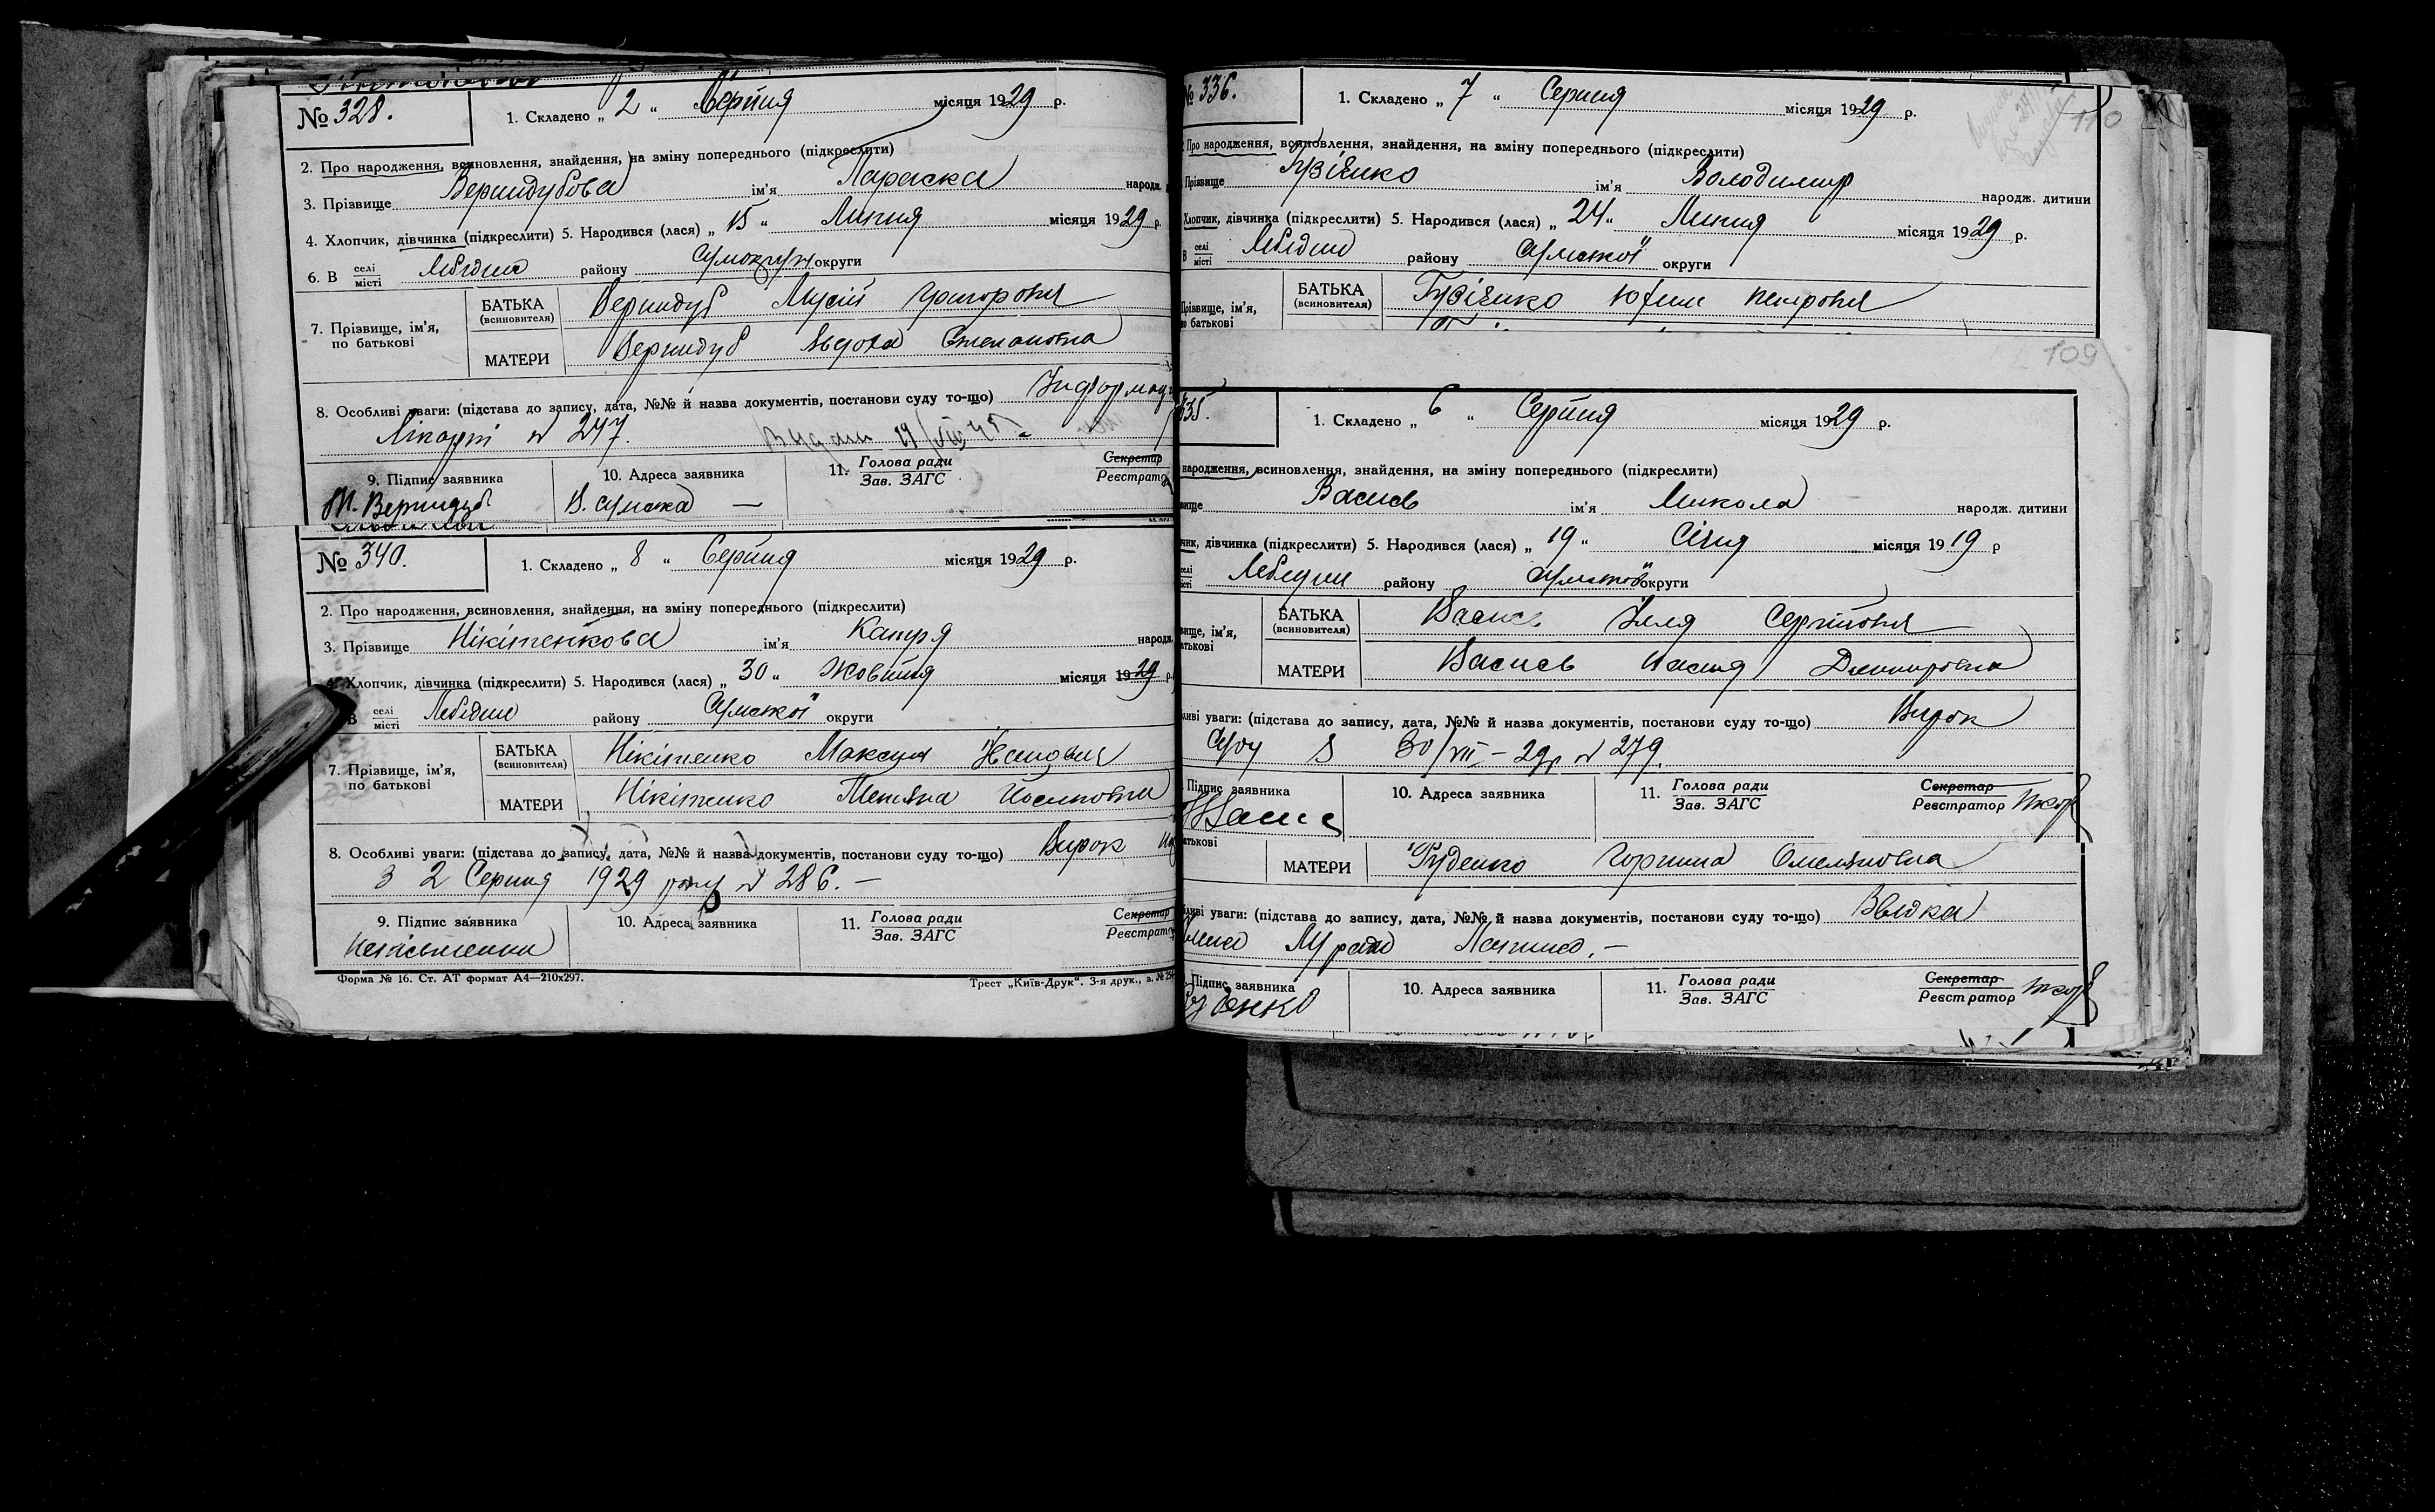 № 328.
1. Складено „ 2 “ Серпня місяця 1929 р.
2. Про народження, всиновлення, знайдення, на зміну попереднього (підкреслити)
3. Прізвище Вернидубова ім'я Параска народж.
4. Хлопчик, дівчинка (підкреслити) 5. Народився (лася) „ 15 “ Липня місяця 1929 р.
6. В селі місті Лебідині району округи
7. Прізвище, ім'я, по батькові
БАТЬКА (всиновителя) Вернидуб Мусій Григорович
МАТЕРИ Вернидуб Явдоха Степановна
8. Особливі уваги: (підстава до запису, дата, №№ й назва документів, постанови суду то-що)
Лікарні № 247.
9. Підпис заявника
10. Адреса заявника
11. Голова ради Зав. ЗАГС
Секретар Реєстратор
М. Вернидуб
В. Сумска —
№ 340.
1. Складено „ 8 “ Серпня місяця 1929 р.
2. Про народження, всиновлення, знайдення, на зміну попереднього (підкреслити)
3. Прізвище Нікітенкова ім'я Катря народж.
4. Хлопчик, дівчинка (підкреслити) 5. Народився (лася) „ 30 “ Жовтня місяця 1929 р.
В селі місті Лебідині району Сумської округи
7. Прізвище, ім'я, по батькові
БАТЬКА (всиновителя) Нікітенко Максим
МАТЕРИ Нікітенко Тетяна Йосиповна
8. Особливі уваги: (підстава до запису, дата, №№ й назва документів, постанови суду то-що) Вирок
З 2 Серпня 1929 року № 286. —
9. Підпис заявника
10. Адреса заявника
11. Голова ради Зав. ЗАГС
Секретар Реєстратор
Неписьменний
Форма № 16. Ст. АТ формат А4—210х297.
Трест „Київ-Друк“. 3-я друк., з. №
№ 336.
1. Складено „ 7 “ Серпня місяця 1929 р.
110
Про народження, всиновлення, знайдення, на зміну попереднього (підкреслити)
Прізвище ім'я Володимир народж. дитини
Хлопчик, дівчинка (підкреслити) 5. Народився (лася) „ 24 “ Липня місяця 1929 р.
В селі місті Лебідині району Сумської округи
Прізвище, ім'я, по батькові
БАТЬКА (всиновителя) Юхим Петрович
109
335.
1. Складено „ 6 “ Серпня місяця 1929 р.
народження, всиновлення, знайдення, на зміну попереднього (підкреслити)
Васись ім'я Микола народж. дитини
дівчинка (підкреслити) 5. Народився (лася) „ 19 “ Січня місяця 1919 р
Лебедині району Сумської округи
БАТЬКА (всиновителя) Васись Ілля Сергійович
МАТЕРИ Васись Настя Дмитровна
уваги: (підстава до запису, дата, №№ й назва документів, постанови суду то-що) Вирок
Суду З 30/VII – 29р № 279.
Підпис заявника
10. Адреса заявника
11. Голова ради Зав. ЗАГС
Секретар Реєстратор
МАТЕРИ Руденко Горпина Омеляновна
уваги: (підстава до запису, дата, №№ й назва документів, постанови суду то-що)
Підпис заявника
10. Адреса заявника
11. Голова ради Зав. ЗАГС
Секретар Реєстратор